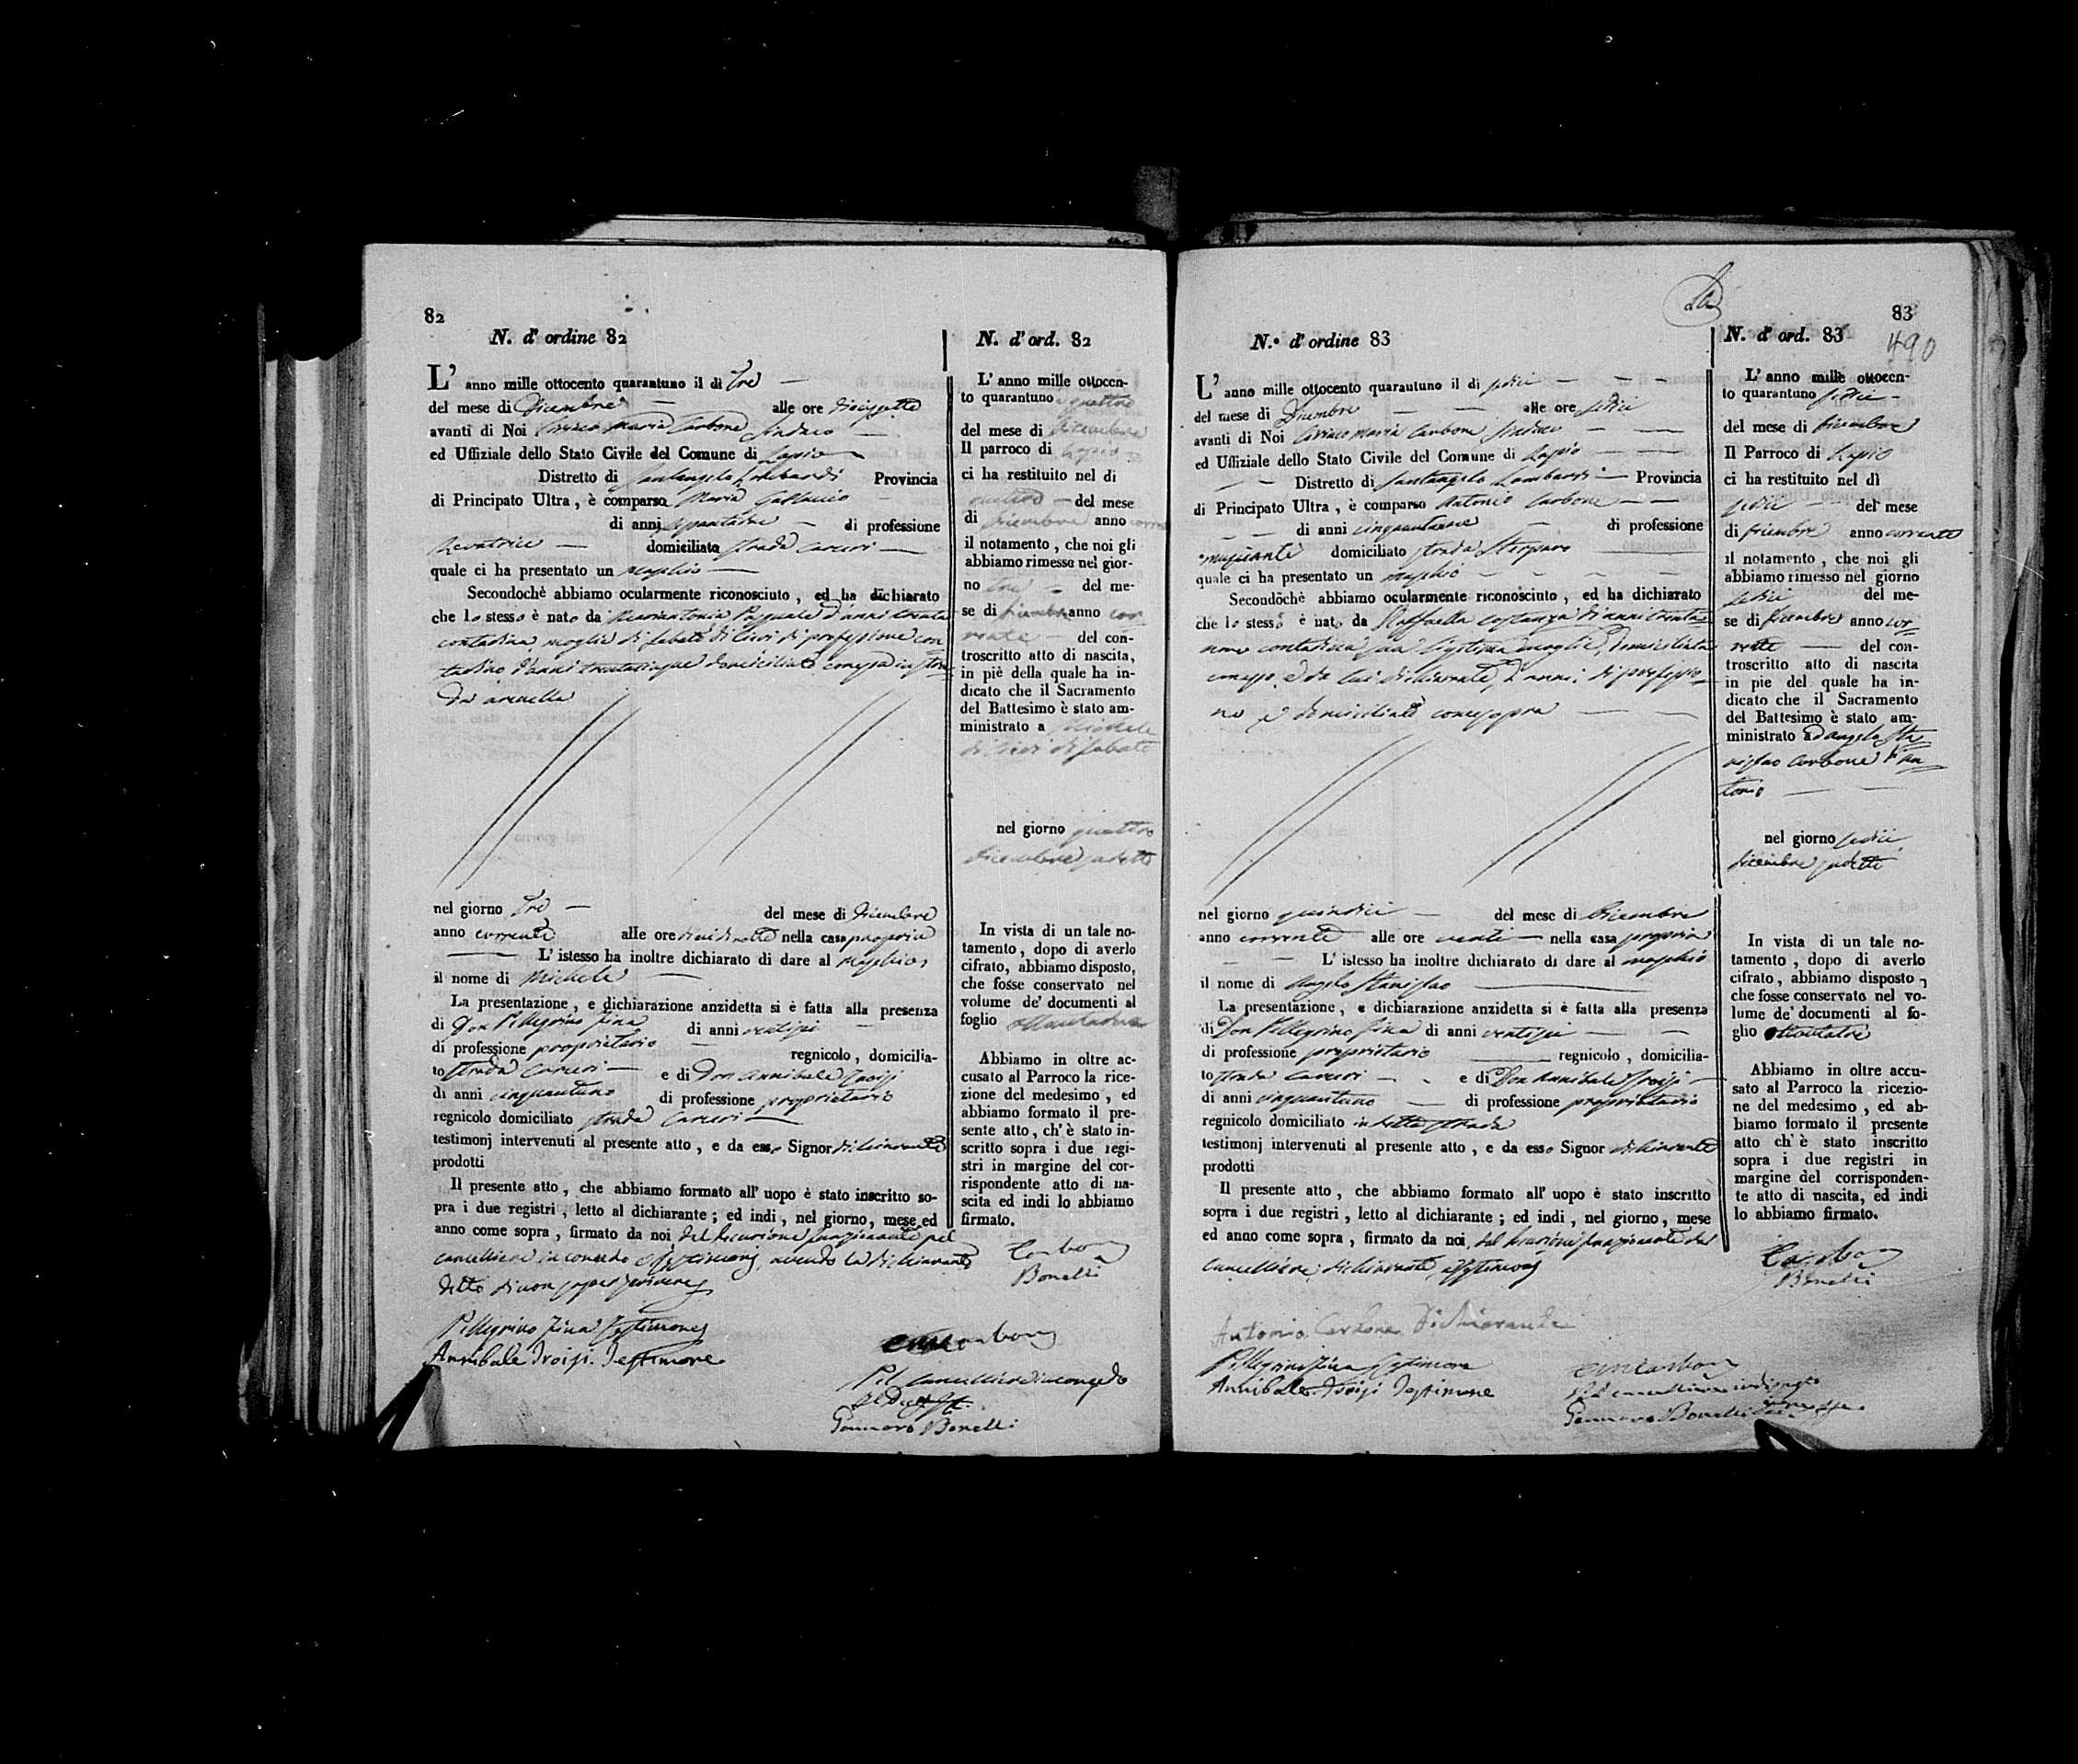 82
N. d' ordine 82
L' anno mille ottocento quarantuno il di tre
del mese di Dicembre alle ore diciassette
avanti di Noi Ciriaco Maria Carbone Sindaco
ed Uffiziale dello Stato Civile del Comune di Lapio
Distretto di Santangelo Lombardi Provincia
di Principato Ultra, è comparsa Maria
di anni di professione
Levatrice domiciliata strada Carceri
quale ci ha presentato un maschio
Secondochè abbiamo ocularmente riconosciuto, ed ha dichiarato
che lo stesso è nato da Mariantonia Pasquale d'anni trenta
contadina, moglie di Sabato di professione con
tadino d'anni trentacinque domiciliato
nel giorno tre del mese di Dicembre
anno corrente alle ore nella casa propria
L' istesso ha inoltre dichiarato di dare al maschio
il nome di Michele
La presentazione, e dichiarazione anzidetta si è fatta alla presenza
di Don Pellegrino Zina di anni ventisei
di professione proprietario regnicolo, domicilia-
to strada Carceri e di Don Annibale Troisi
di anni cinquantuno di professione proprietario
regnicolo domiciliato strada Carceri
testimonj intervenuti al presente atto, e da esso Signor dichiarante
prodotti
Il presente atto, che abbiamo formato all' uopo è stato inscritto so-
pra i due registri, letto al dichiarante; ed indi, nel giorno, mese ed
anno come sopra, firmato da noi dal Decurione funzionante pel
cancelliere in congedo e testimoni, avendo la dichiarante
detto di non saper scrivere
Pellegrino Zina Testimone
Annibale Troisi Testimone
Carbone
Pel cancelliere in congedo
Gennaro Bonelli
N. d' ord. 82
L' anno mille ottocen-
to quarantuno quattro
del mese di Dicembre
Il parroco di Lapio
ci ha restituito nel di
quattro del mese
di Dicembre anno corrente
il notamento, che noi gli
abbiamo rimesso nel gior-
no tre del me-
se di Dicembre anno cor-
rente del con-
troscritto atto di nascita,
in piè della quale ha in-
dicato che il Sacramento
del Battesimo è stato am-
ministrato a Michele
di Sabato
nel giorno quattro
Dicembre sudetto
In vista di un tale no-
tamento, dopo di averlo
cifrato, abbiamo disposto,
che fosse conservato nel
volume de' documenti al
foglio ottantadue
Abbiamo in oltre ac-
cusato al Parroco la rice-
zione del medesimo, ed
abbiamo formato il pre-
sente atto, ch' è stato in-
scritto sopra i due regi-
stri in margine del cor-
rispondente atto di na-
scita ed indi lo abbiamo
firmato.
Carbone
Bonelli
83
490
N.° d' ordine 83
L' anno mille ottocento quarantuno il di sedici
del mese di Dicembre alle ore sedici
avanti di Noi Ciriaco Maria Carbone Sindaco
ed Uffiziale dello Stato Civile del Comune di Lapio
Distretto di Santangelo Lombardi Provincia
di Principato Ultra, è comparso Antonio Carbone
di anni di professione
domiciliato strada
quale ci ha presentato un maschio
Secondochè abbiamo ocularmente riconosciuto, ed ha dichiarato
che lo stesso è nato da Raffaella Costanza di anni trenta
nove contadina sua legittima moglie, domiciliata
e da lui dichiarante, d'anni, di professio-
ne e domiciliato come sopra
nel giorno quindici del mese di Dicembre
anno corrente alle ore venti nella casa propria
L' istesso ha inoltre dichiarato di dare al maschio
il nome di Angelo Stanislao
La presentazione, e dichiarazione anzidetta si è fatta alla presenza
di Don Pellegrino Zina di anni ventisei
di professione proprietario regnicolo, domicilia-
to strada Carceri e di Don Annibale Troisi
di anni cinquantuno di professione proprietario
regnicolo domiciliato in detta strada
testimonj intervenuti al presente atto, e da esso Signor dichiarante
prodotti
Il presente atto, che abbiamo formato all' uopo è stato inscritto
sopra i due registri, letto al dichiarante; ed indi, nel giorno, mese
ed anno come sopra, firmato da noi, dal Decurione funzionante del
Cancelliere, dichiarante, e testimoni
Antonio Carbone Dichiarante
Pellegrino Zina Testimone
Annibale Troisi Testimone
Carbone
Gennaro Bonelli
N. d' ord. 83
L' anno mille ottocen-
to quarantuno sedici
del mese di Dicembre
Il Parroco di Lapio
ci ha restituito nel dì
sedici del mese
di Dicembre anno corrente
il notamento, che noi gli
abbiamo rimesso nel giorno
sedici del me-
se di Dicembre anno cor-
rente del con-
troscritto atto di nascita
in pie del quale ha in-
dicato che il Sacramento
del Battesimo è stato am-
ministrato ad Angelo Sta
nislao Carbone d'An
tonio
nel giorno sedici
Dicembre sudetto
In vista di un tale no-
tamento, dopo di averlo
cifrato, abbiamo disposto,
che fosse conservato nel vo-
lume de' documenti al fo-
glio ottantatre
Abbiamo in oltre accu-
sato al Parroco la ricezio-
ne del medesimo, ed ab-
biamo formato il presente
atto ch' è stato inscritto
sopra i due registri in
margine del corrisponden-
te atto di nascita, ed indi
lo abbiamo firmato.
Carbone
Bonelli